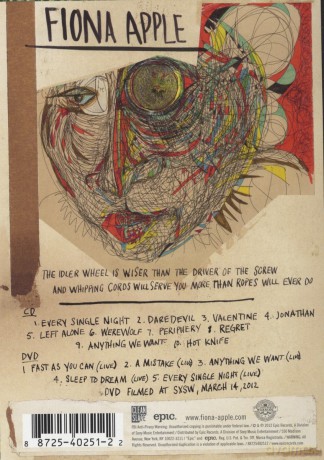 FIONA APPLE
THE IDLER WHEEL IS WISER THAN THE DRIVER OF THE SCREW
AND WHIPPING CORDS WILL SERVE YOU MORE THAN ROPES WILL EVER DO
CD
1. EVERY SINGLE NIGHT 2. DAREDEVIL 3. VALENTINE 4. JONATHAN
5. LEFT ALONE 6. WEREWOLF 7. PERIPHERY 8. REGRET
9. ANYTHING WE WANT 10. HOT KNIFE
DVD
1 FAST AS YOU CAN (LIVE) 2. A MISTAKE (LIVE) 3. ANYTHING WE WANT (LIVE)
4. SLEEP TO DREAM (LIVE) 5 EVERY SINGLE NIGHT (LIVE)
DVD FILMED AT SXSW, MARCH 14, 2012
CLEAN SLATE
epic.
www.fiona-apple.com
8 88725-40251-2 2